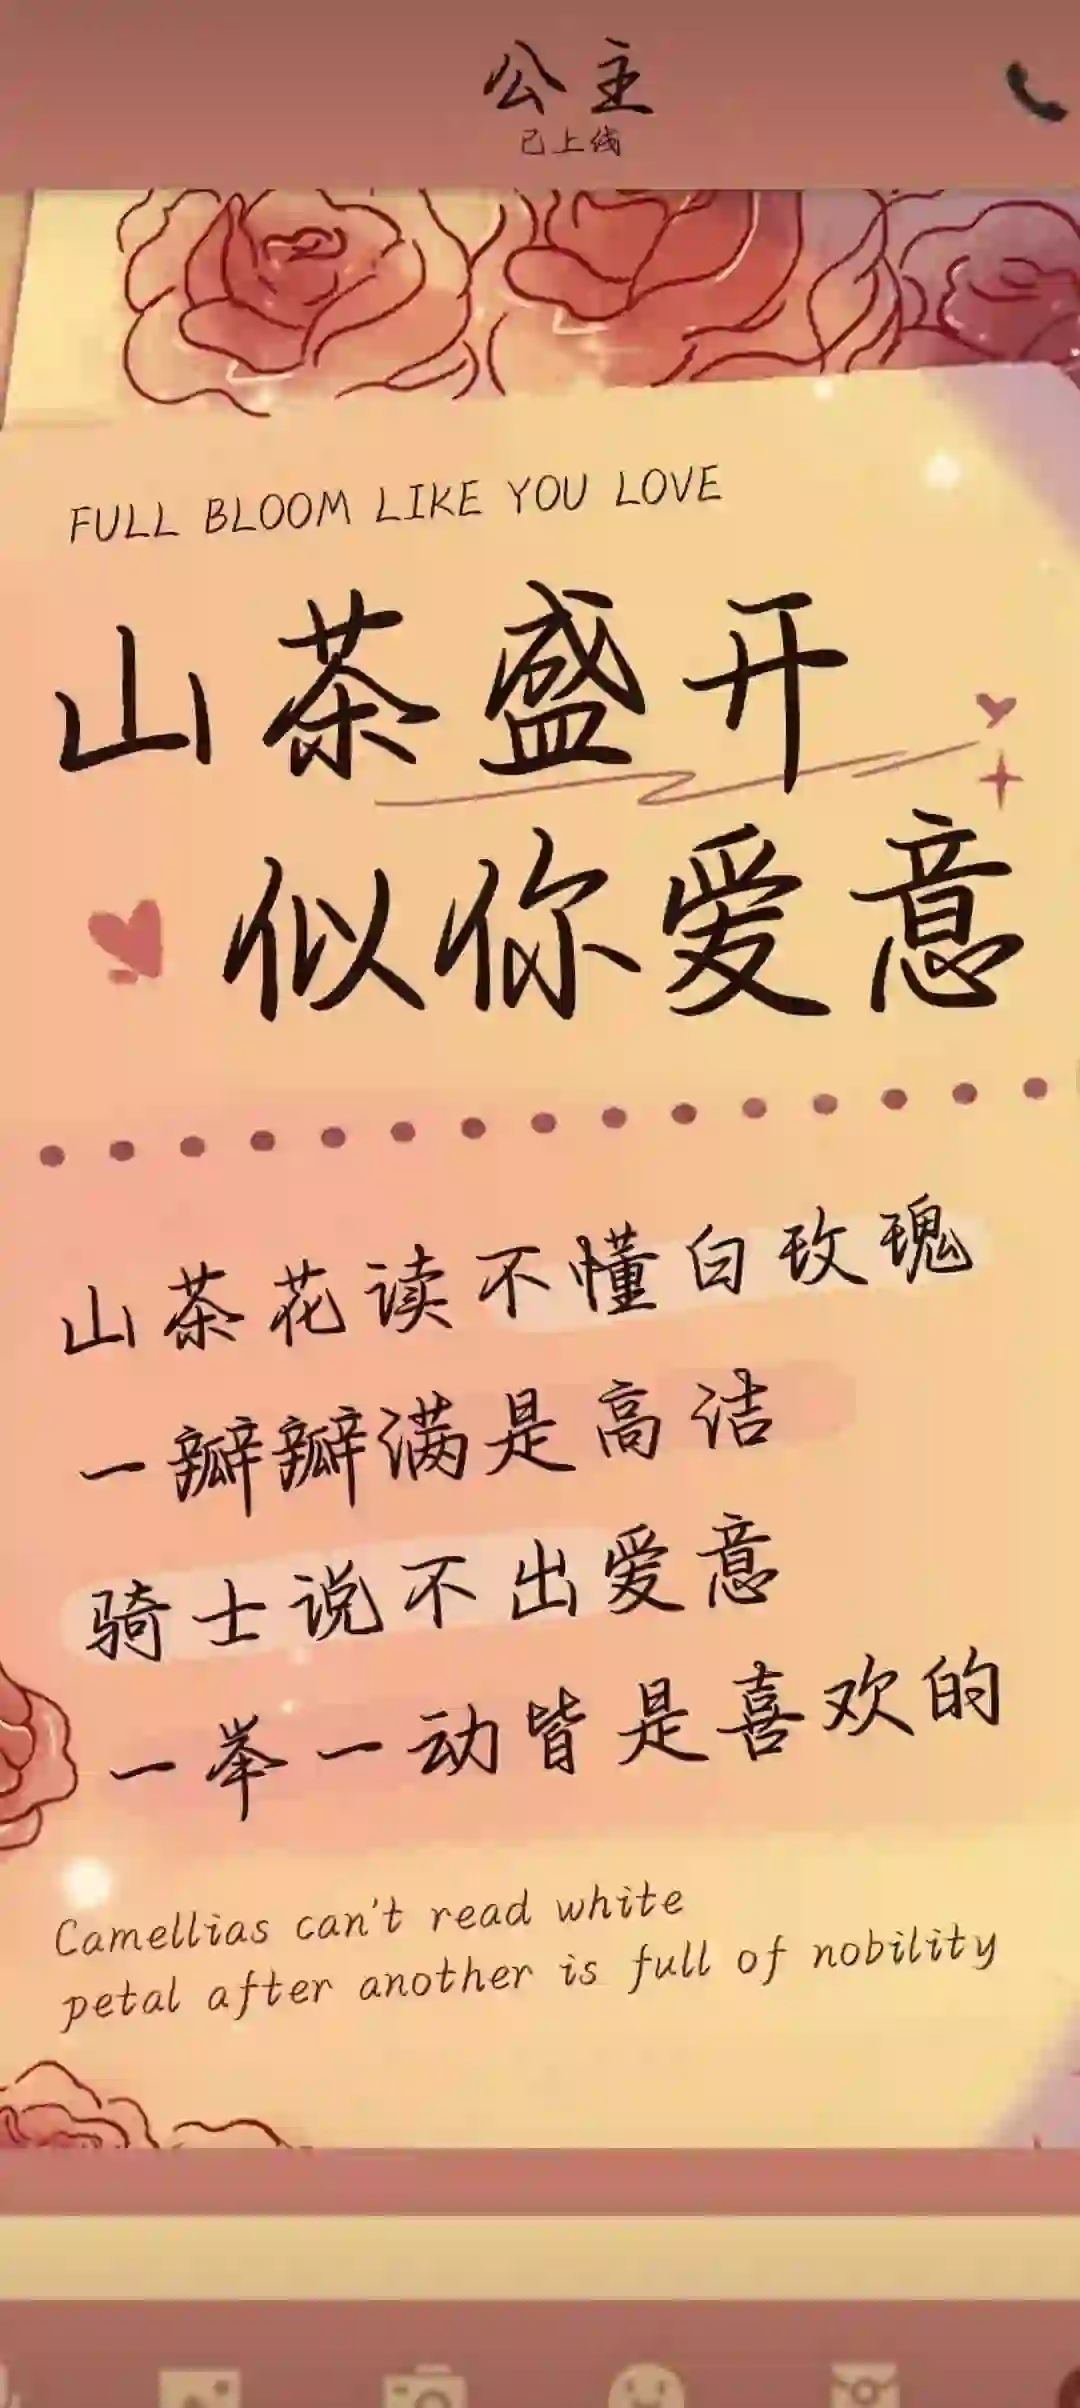 公主
已上线
FULL BLOOM LIKE YOU LOVE
山茶盛开
似你爱意
山茶花读不懂白玫瑰
一瓣瓣满是高洁
骑士说不出爱意
一举一动皆是喜欢的
Camellias can't read white
petal after another is full of nobility